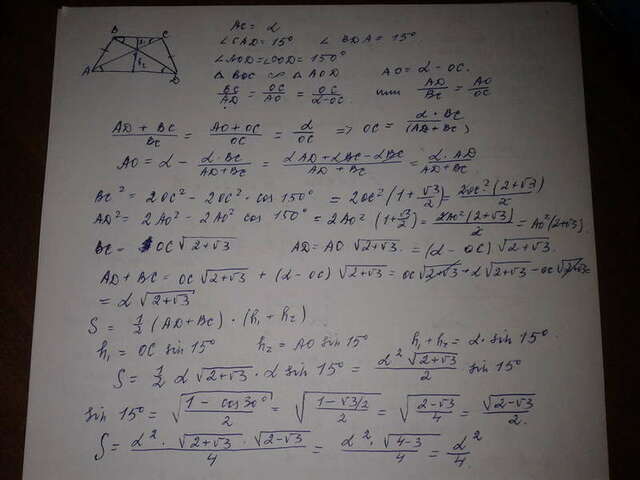 B C
h₁
h₂
A D
AC = d
∠CAD = 15° ∠BDA = 15°
∠AOD = ∠COD = 150°
△BOC ∾ △AOD AO = d - OC.
BC/AD = OC/AO = OC/(d-OC) или AD/BC = AO/OC
(AD + BC)/BC = (AO + OC)/OC = d/OC ⇒ OC = d·BC/(AD+BC)
AO = d - d·BC/(AD+BC) = (dAD + dBC - dBC)/(AD + BC) = d·AD/(AD+BC)
BC² = 2OC² - 2OC²·cos 150° = 2OC²(1+√3/2) = 2OC²(2+√3)/2
AD² = 2AO² - 2AO² cos 150° = 2AO²(1+√3/2) = 2AO²(2+√3)/2 = AO²(2+√3).
BC = OC√(2+√3) AD = AO√(2+√3) = (d - OC)√(2+√3).
AD + BC = OC√(2+√3) + (d - OC)√(2+√3) = OC√(2+√3) + d√(2+√3) - OC√(2+√3)
= d√(2+√3)
S = 1/2 (AD+BC)·(h₁+h₂)
h₁ = OC sin 15° h₂ = AO sin 15° h₁+h₂ = d·sin 15°.
S = 1/2 d√(2+√3)·d sin 15° = d²√(2+√3)/2 sin 15°
sin 15° = √((1 - cos 30°)/2) = √((1-√3/2)/2) = √((2-√3)/4) = √(2-√3)/2.
S = d²·√(2+√3)·√(2-√3)/4 = d²·√(4-3)/4 = d²/4.